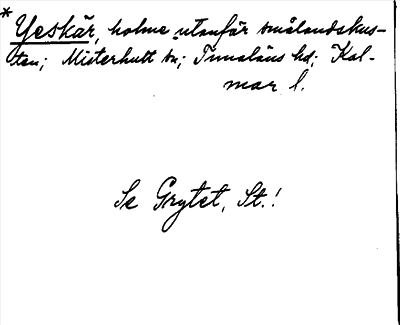 * Yeskär, holme utanför smålandskus-
ten; Misterhult sn; Tunaläns hd; Kal-
mar l.
Se Grytet, St.!